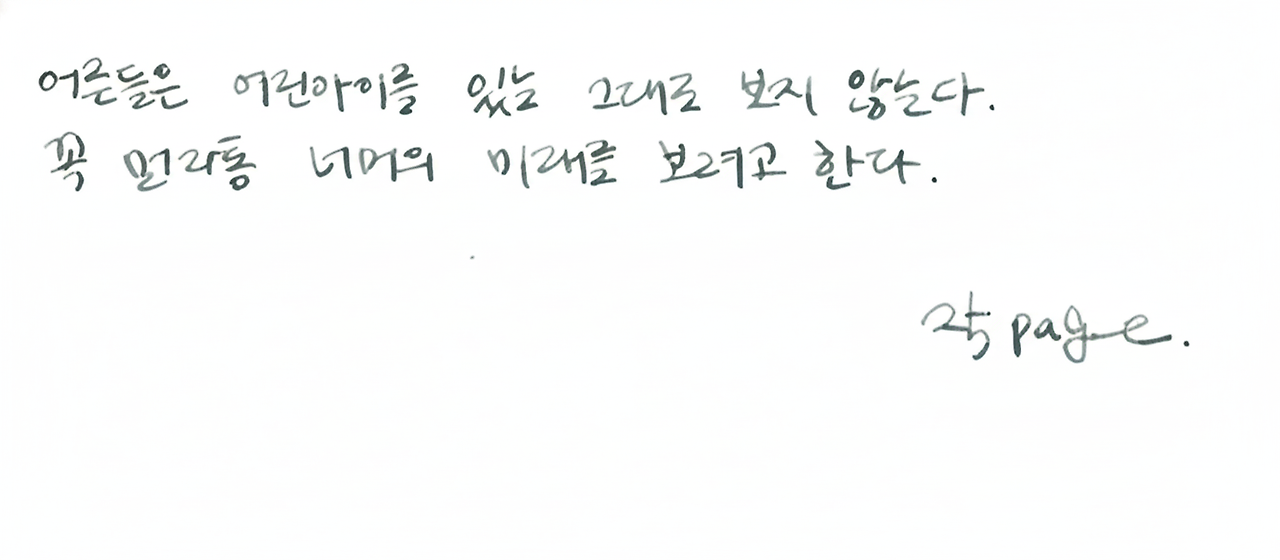 어른들은 어린아이를 있는 그대로 보지 않는다.
꼭 너머의 미래를 보려고 한다.
page.